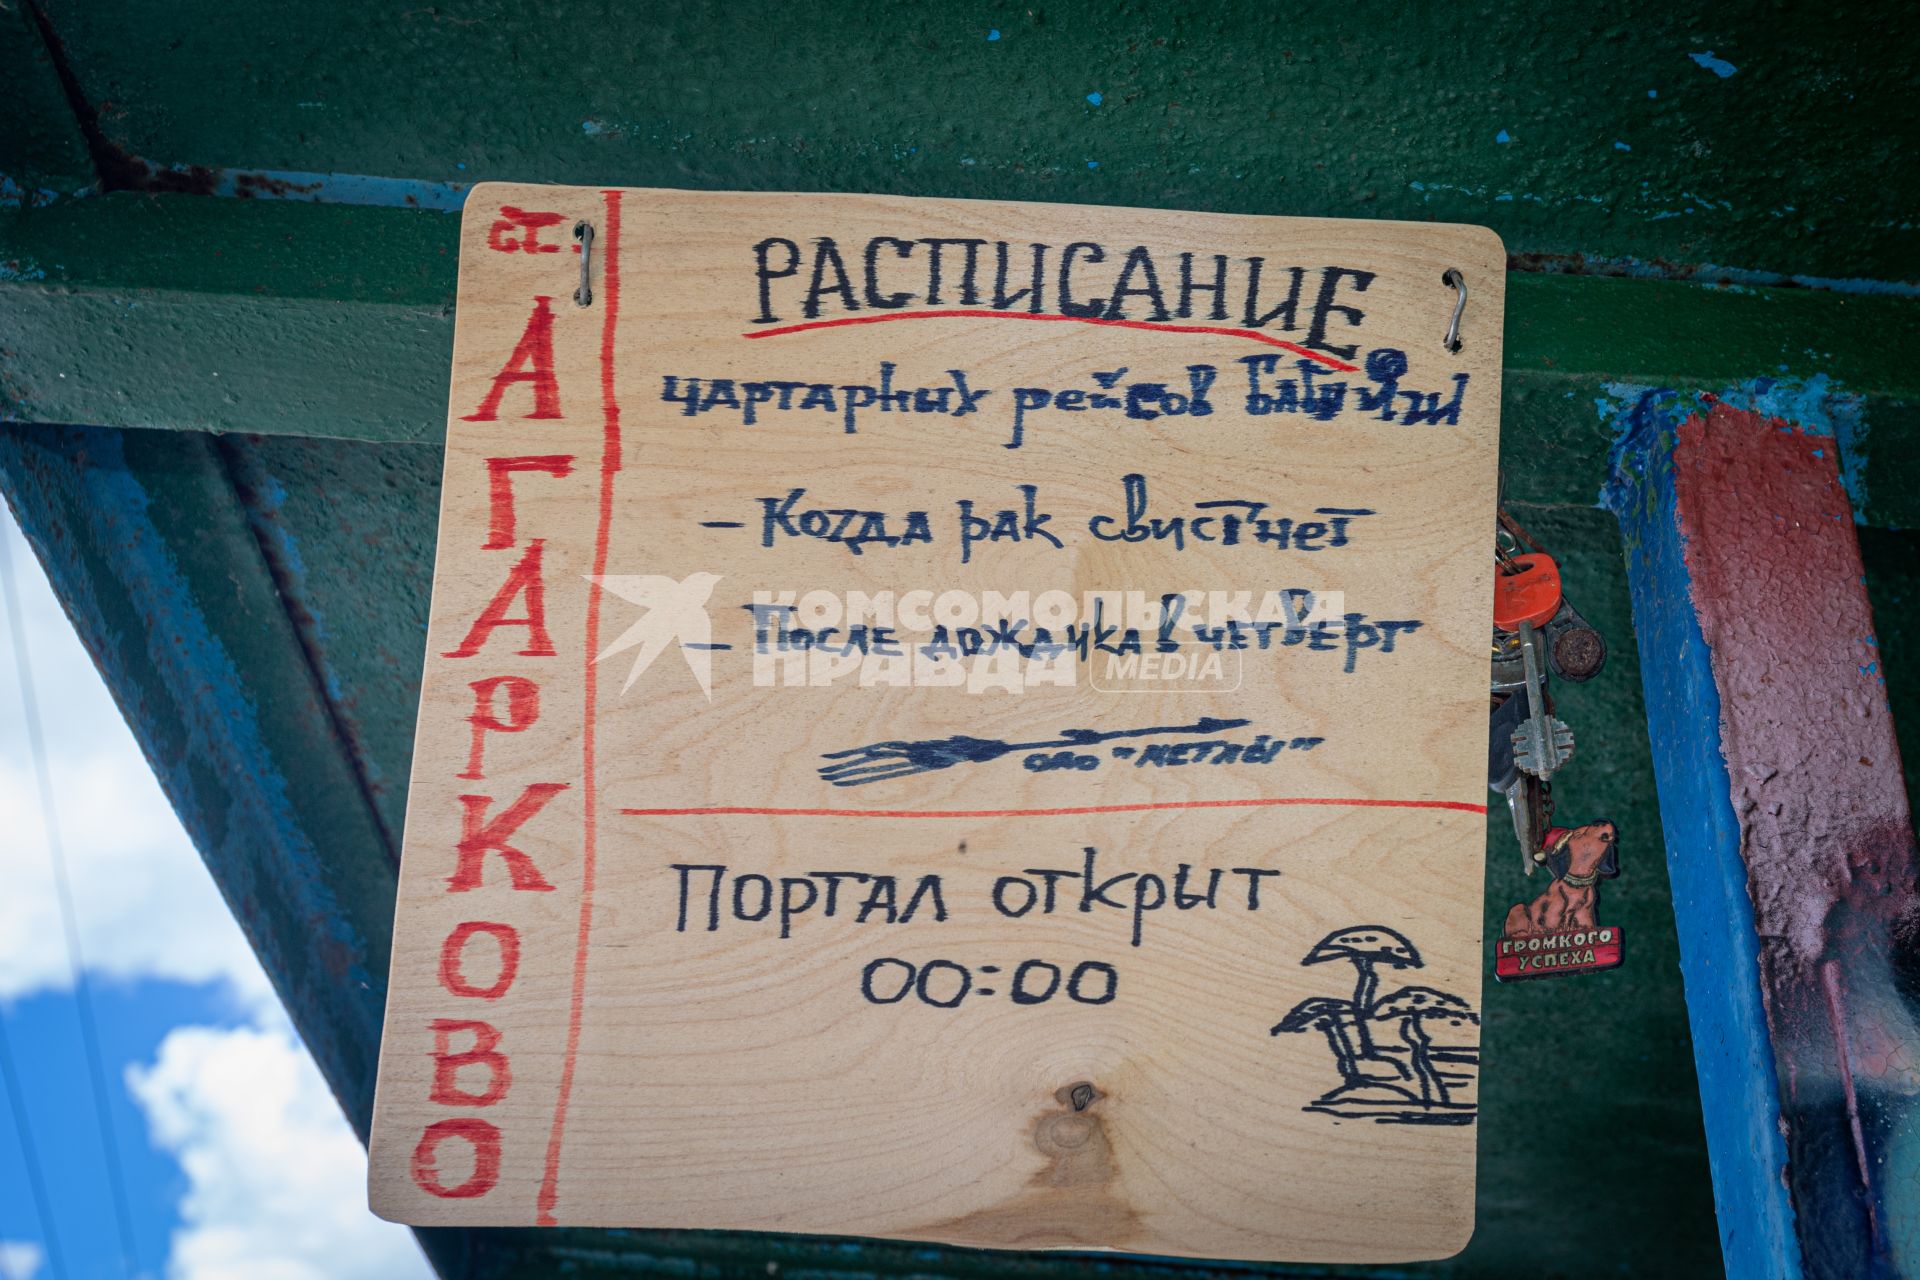 ст. АГАРКОВО
РАСПИСАНИЕ
чартарных рейсов
– Когда рак свистнет
– После дождика в четверг
ОАО "МЕТЛЫ"
Портал открыт
00:00
КОМСОМОЛЬСКАЯ
ПРАВДА MEDIA
ГРОМКОГО
УСПЕХА